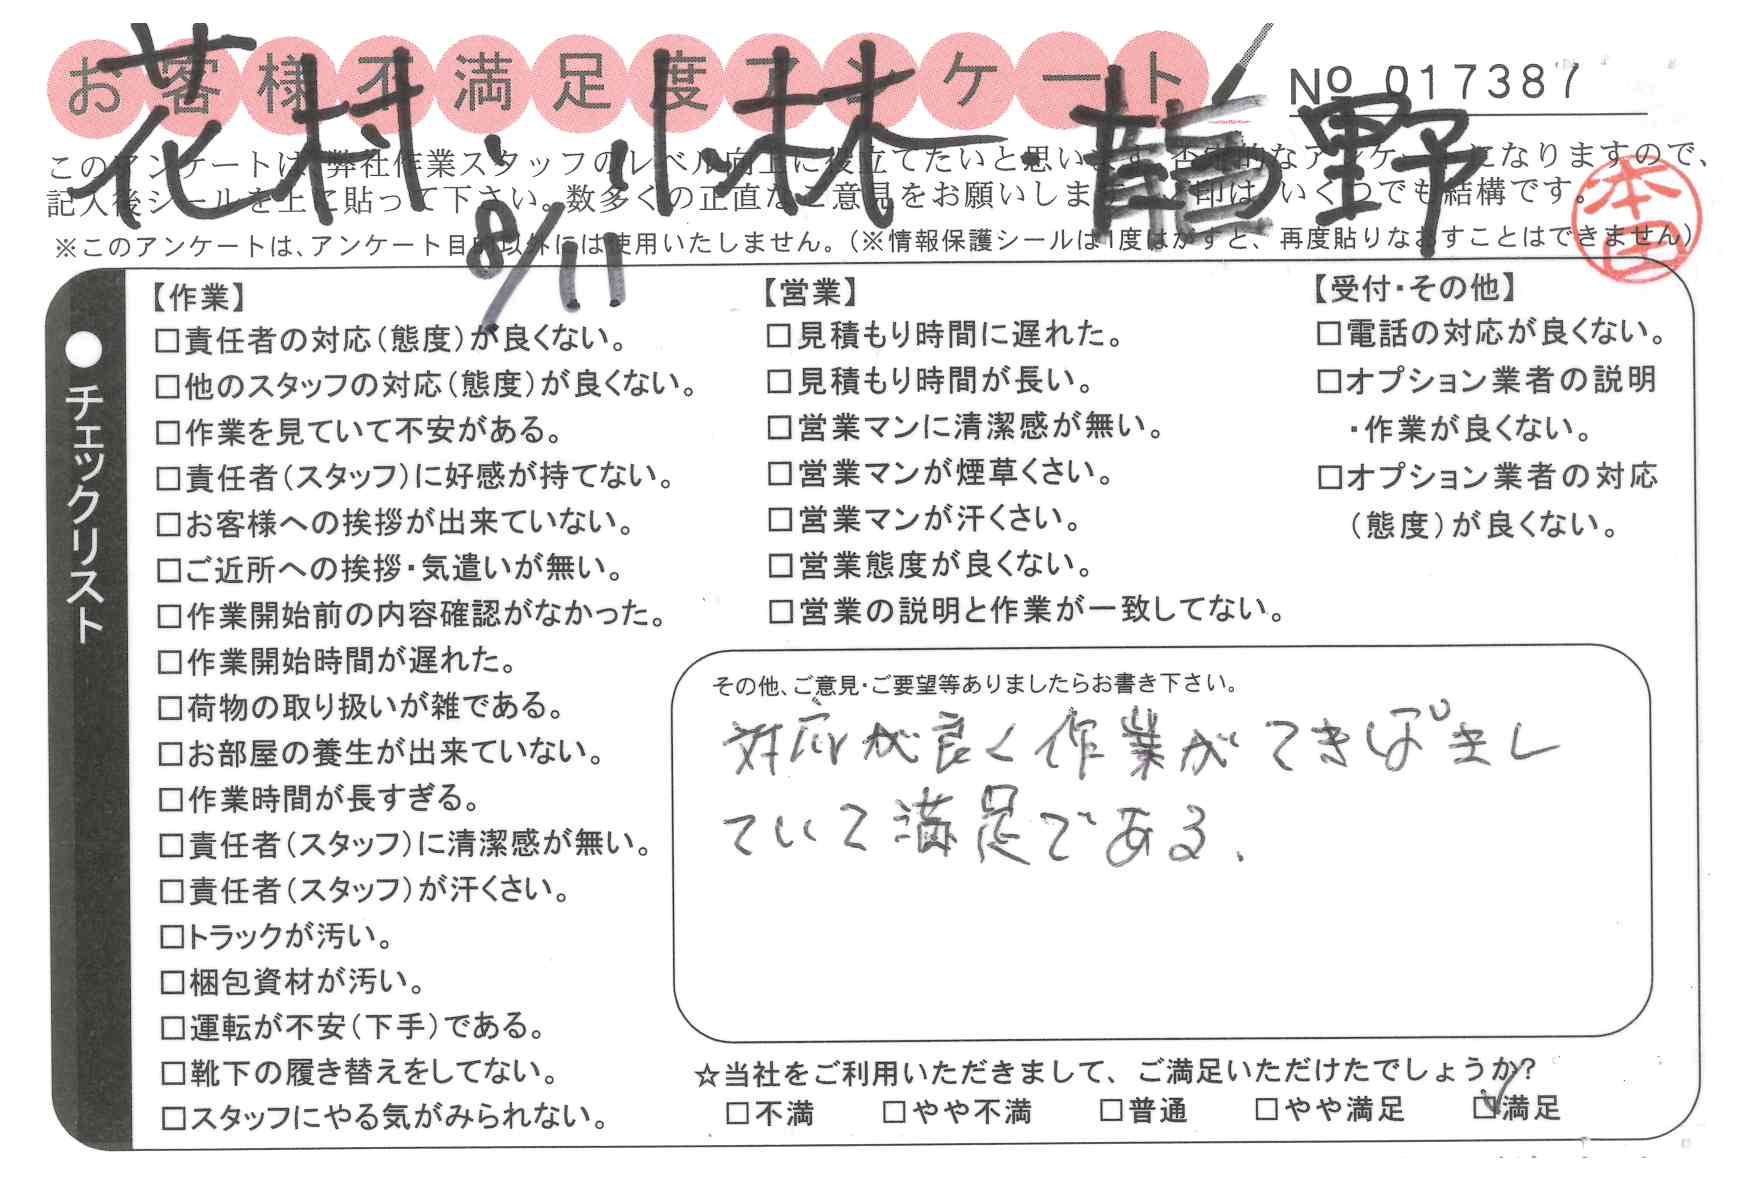 お客様不満足度アンケート
№ 017387
花村・小林・龍野
8/11
本田
このアンケートは、弊社作業スタッフのレベル向上に役立てたいと思います。否定的なアンケートになりますので、
記入後シールを上に貼って下さい。数多くの正直なご意見をお願いします。レ印は、いくつでも結構です。
※このアンケートは、アンケート目的以外には使用いたしません。（※情報保護シールは1度はがすと、再度貼りなおすことはできません）
●チェックリスト
【作業】
□責任者の対応（態度）が良くない。
□他のスタッフの対応（態度）が良くない。
□作業を見ていて不安がある。
□責任者（スタッフ）に好感が持てない。
□お客様への挨拶が出来ていない。
□ご近所への挨拶・気遣いが無い。
□作業開始前の内容確認がなかった。
□作業開始時間が遅れた。
□荷物の取り扱いが雑である。
□お部屋の養生が出来ていない。
□作業時間が長すぎる。
□責任者（スタッフ）に清潔感が無い。
□責任者（スタッフ）が汗くさい。
□トラックが汚い。
□梱包資材が汚い。
□運転が不安（下手）である。
□靴下の履き替えをしてない。
□スタッフにやる気がみられない。
【営業】
□見積もり時間に遅れた。
□見積もり時間が長い。
□営業マンに清潔感が無い。
□営業マンが煙草くさい。
□営業マンが汗くさい。
□営業態度が良くない。
□営業の説明と作業が一致してない。
【受付・その他】
□電話の対応が良くない。
□オプション業者の説明
・作業が良くない。
□オプション業者の対応
（態度）が良くない。
その他、ご意見・ご要望等ありましたらお書き下さい。
対応が良く作業がてきぱきし
ていて満足である。
☆当社をご利用いただきまして、ご満足いただけたでしょうか?
□不満 □やや不満 □普通 □やや満足 ☑満足